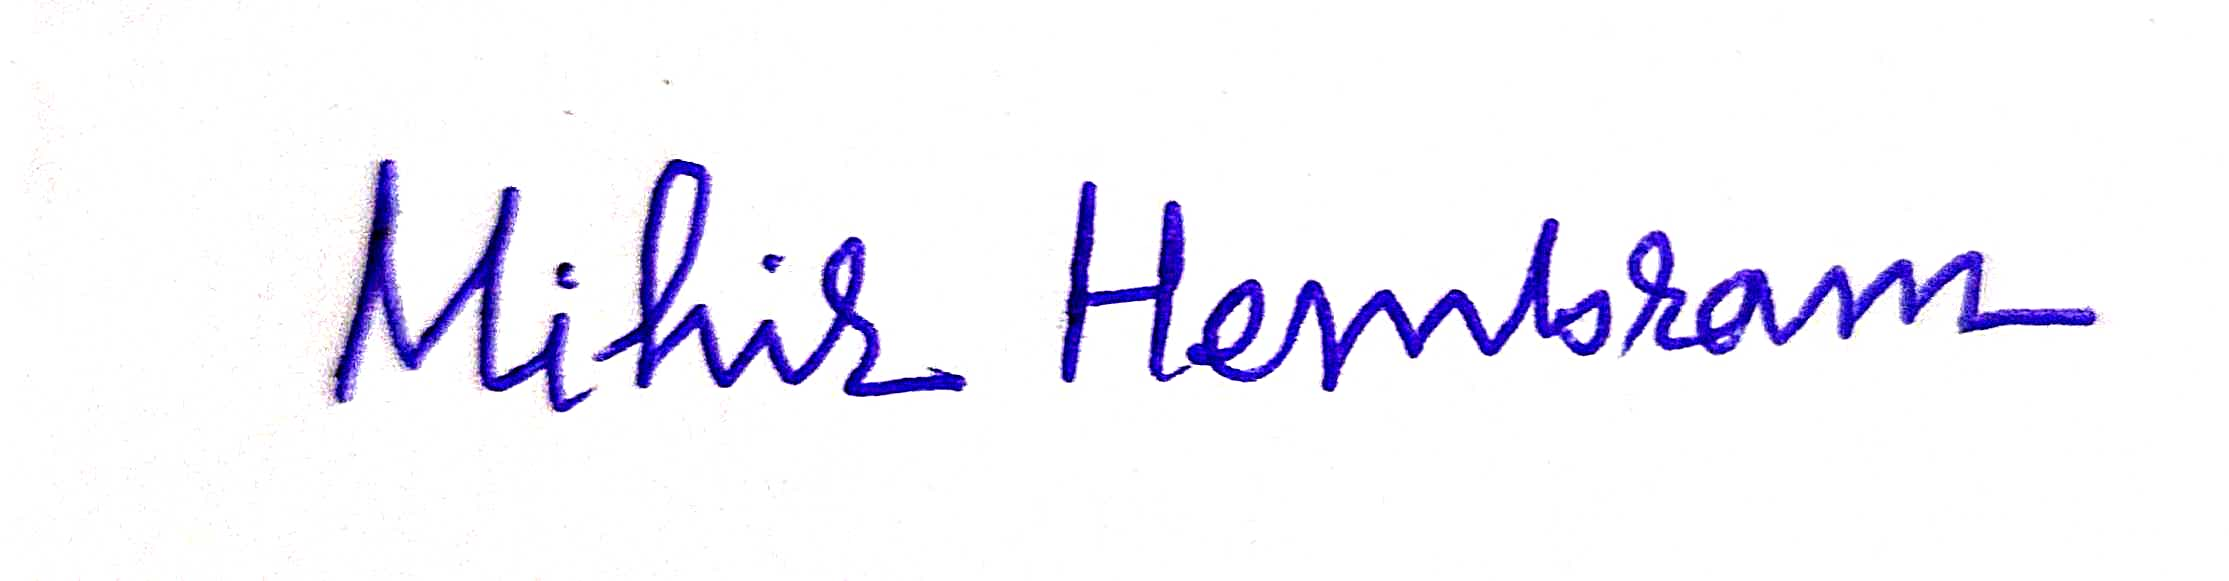 Mihir Hembram